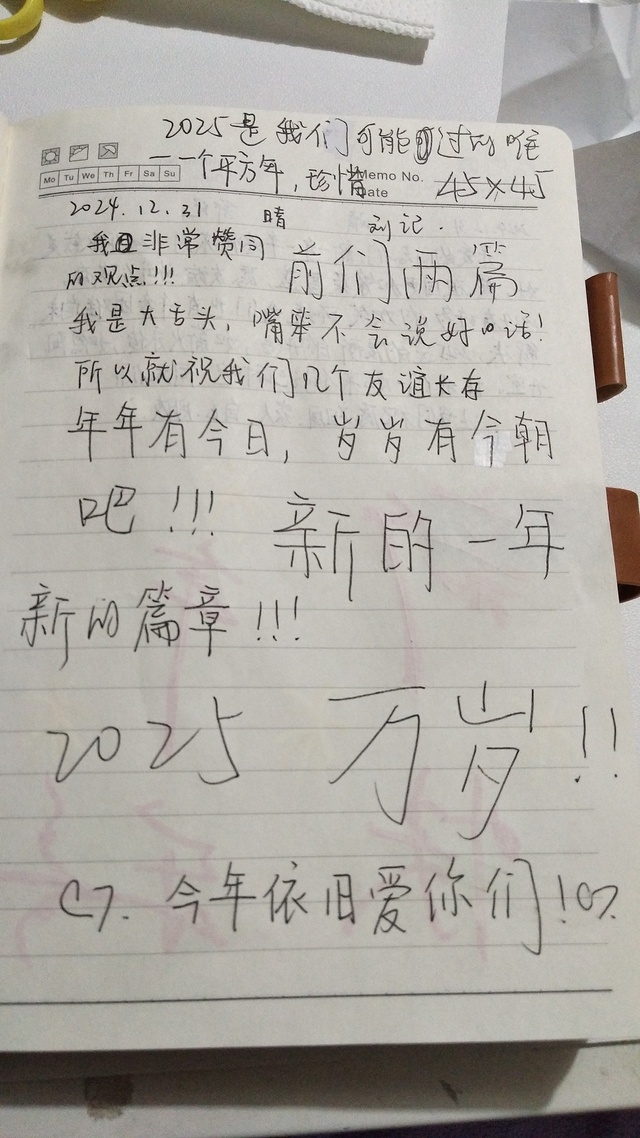 2025是我们可能过的唯
一一个平方年，珍惜 45×45
Mo Tu We Th Fr Sa Su
Memo No.
Date
2024.12.31 晴 刘记.
我 非常赞同 前们两篇
的观点!!!
我是大舌头，嘴笨不会说好口话!
所以就祝我们几个友谊长存
年年有今日，岁岁有今朝
吧!!! 新的一年
新的篇章!!!
2025 万岁!!
今年依旧爱你们!